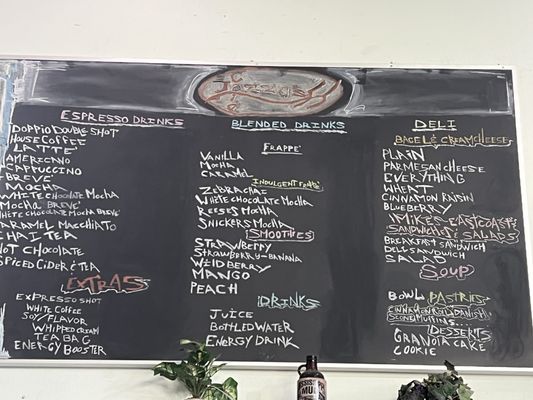 Jazzas
ESPRESSO DRINKS
DOPPIO DOUBLE SHOT
HOUSE COFFEE
LATTE'
AMERICANO
CAPPUCCINO
BREVE'
MOCHA
WHITE CHOCOLATE MOCHA
MOCHA BREVE'
WHITE CHOCOLATE MOCHA BREVE'
CARAMEL MACCHIATO
CHAI TEA
HOT CHOCOLATE
SPICED CIDER & TEA
EXTRAS
EXPRESSO SHOT
WHITE COFFEE
SOY FLAVOR
WHIPPED CREAM
TEA BAG
ENERGY BOOSTER
BLENDED DRINKS
FRAPPE'
VANILLA
MOCHA
CARAMEL
INDULGENT FRAPPE'
ZEBRACHAI
WHITE CHOCOLATE MOCHA
REESES MOCHA
SNICKERS MOCHA
SMOOTHIES
STRAWBERRY
STRAWBERRY-BANANA
WILDBERRY
MANGO
PEACH
DRINKS
JUICE
BOTTLED WATER
ENERGY DRINK
DELI
BAGEL & CREAM CHEESE
PLAIN
PARMESAN CHEESE
EVERYTHING
WHEAT
CINNAMON RAISIN
BLUEBERRY
MIKE'S EAST COAST
SANDWICHES & SALADS
BREAKFAST SANDWICH
DELI SANDWICH
SALAD
SOUP
BOWL
PASTRIES
CINNAMON ROLL DANISH
SCONE MUFFINS...
DESSERTS
GRANOLA CAKE
COOKIE